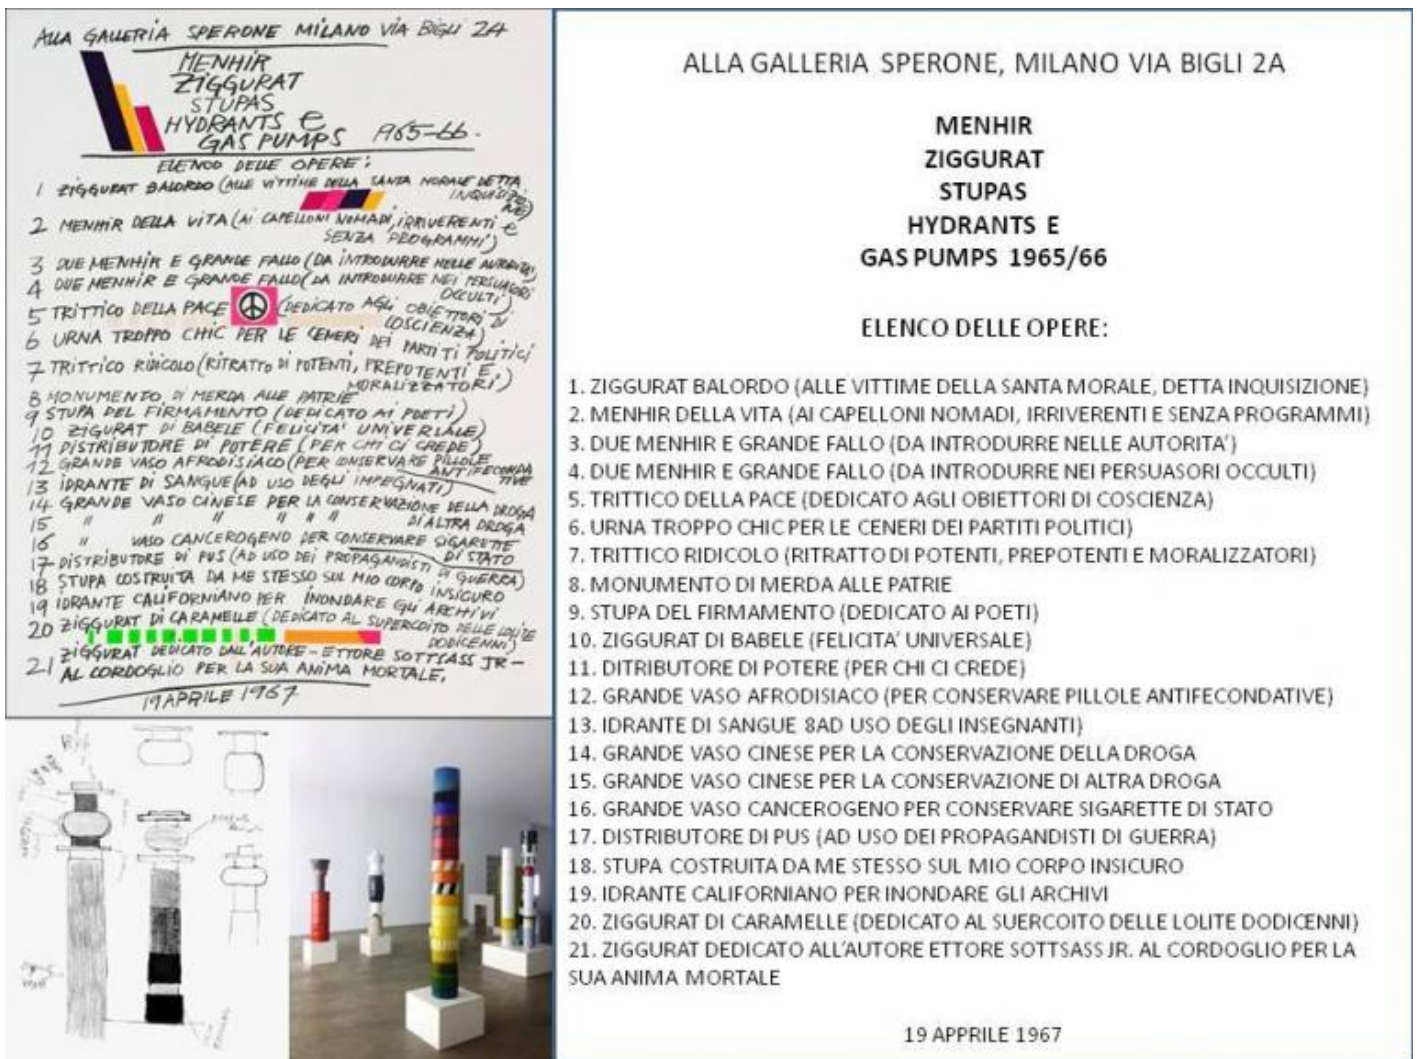 ALLA GALLERIA SPERONE MILANO VIA BIGLI 24
MENHIR
ZIGGURAT
STUPAS
HYDRANTS e
GAS PUMPS 1965-66.
ELENCO DELLE OPERE:
1 ZIGGURAT BALORDO (ALLE VITTIME DELLA SANTA MORALE DETTA
INQUISIZIO
NE)
2 MENHIR DELLA VITA (AI CAPELLONI NOMADI, IRRIVERENTI e
SENZA PROGRAMMI)
3 DUE MENHIR E GRANDE FALLO (DA INTRODURRE NELLE AUTORITA')
4 DUE MENHIR E GRANDE FALLO (DA INTRODURRE NEI PERSUASORI
OCCULTI)
5 TRITTICO DELLA PACE (DEDICATO AGLI OBIETTORI DI
COSCIENZA)
6 URNA TROPPO CHIC PER LE CENERI DEI PARTITI POLITICI
7 TRITTICO RIDICOLO (RITRATTO DI POTENTI, PREPOTENTI E
MORALIZZATORI)
8 MONUMENTO DI MERDA ALLE PATRIE
9 STUPA DEL FIRMAMENTO (DEDICATO AI POETI)
10 ZIGURAT DI BABELE (FELICITA' UNIVERSALE)
11 DISTRIBUTORE DI POTERE (PER CHI CI CREDE)
12 GRANDE VASO AFRODISIACO (PER CONSERVARE PILLOLE
ANTIFECONDA
TIVE)
13 IDRANTE DI SANGUE (AD USO DEGLI IMPEGNATI)
14 GRANDE VASO CINESE PER LA CONSERVAZIONE DELLA DROGA
15 " " " " " " DI ALTRA DROGA
16 " VASO CANCEROGENO PER CONSERVARE SIGARETTE
DI STATO
17 DISTRIBUTORE DI PUS (AD USO DEI PROPAGANDISTI DI GUERRA)
18 STUPA COSTRUITA DA ME STESSO SUL MIO CORPO INSICURO
19 IDRANTE CALIFORNIANO PER INONDARE GLI ARCHIVI
20 ZIGGURAT DI CARAMELLE (DEDICATO AL SUPERCOITO DELLE LOLITE
DODICENNI)
21 ZIGGURAT DEDICATO DALL'AUTORE - ETTORE SOTTSASS JR -
AL CORDOGLIO PER LA SUA ANIMA MORTALE.
19 APRILE 1967
ALLA GALLERIA SPERONE, MILANO VIA BIGLI 2A
MENHIR
ZIGGURAT
STUPAS
HYDRANTS E
GAS PUMPS 1965/66
ELENCO DELLE OPERE:
1. ZIGGURAT BALORDO (ALLE VITTIME DELLA SANTA MORALE, DETTA INQUISIZIONE)
2. MENHIR DELLA VITA (AI CAPELLONI NOMADI, IRRIVERENTI E SENZA PROGRAMMI)
3. DUE MENHIR E GRANDE FALLO (DA INTRODURRE NELLE AUTORITA')
4. DUE MENHIR E GRANDE FALLO (DA INTRODURRE NEI PERSUASORI OCCULTI)
5. TRITTICO DELLA PACE (DEDICATO AGLI OBIETTORI DI COSCIENZA)
6. URNA TROPPO CHIC PER LE CENERI DEI PARTITI POLITICI)
7. TRITTICO RIDICOLO (RITRATTO DI POTENTI, PREPOTENTI E MORALIZZATORI)
8. MONUMENTO DI MERDA ALLE PATRIE
9. STUPA DEL FIRMAMENTO (DEDICATO AI POETI)
10. ZIGGURAT DI BABELE (FELICITA' UNIVERSALE)
11. DITRIBUTORE DI POTERE (PER CHI CI CREDE)
12. GRANDE VASO AFRODISIACO (PER CONSERVARE PILLOLE ANTIFECONDATIVE)
13. IDRANTE DI SANGUE 8AD USO DEGLI INSEGNANTI)
14. GRANDE VASO CINESE PER LA CONSERVAZIONE DELLA DROGA
15. GRANDE VASO CINESE PER LA CONSERVAZIONE DI ALTRA DROGA
16. GRANDE VASO CANCEROGENO PER CONSERVARE SIGARETTE DI STATO
17. DISTRIBUTORE DI PUS (AD USO DEI PROPAGANDISTI DI GUERRA)
18. STUPA COSTRUITA DA ME STESSO SUL MIO CORPO INSICURO
19. IDRANTE CALIFORNIANO PER INONDARE GLI ARCHIVI
20. ZIGGURAT DI CARAMELLE (DEDICATO AL SUERCOITO DELLE LOLITE DODICENNI)
21. ZIGGURAT DEDICATO ALL'AUTORE ETTORE SOTTSASS JR. AL CORDOGLIO PER LA
SUA ANIMA MORTALE
19 APPRILE 1967